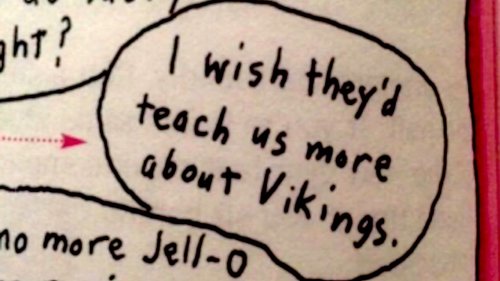 ght?
I wish they'd
teach us more
about Vikings.
no more Jell-O